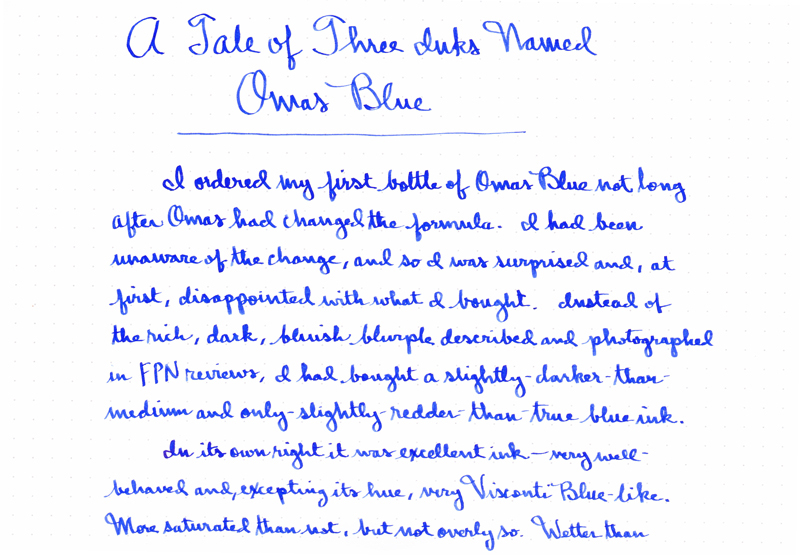 A Tale of Three Inks Named
Omas Blue
I ordered my first bottle of Omas Blue not long
after Omas had changed the formula. I had been
unaware of the change, and so I was surprised and, at
first, disappointed with what I bought. Instead of
the rich, dark, bluish blurple described and photographed
in FPN reviews, I had bought a slightly-darker-than-
medium and only-slightly-redder-than-true blue ink.
In its own right it was excellent ink – very well-
behaved and, excepting its hue, very Visconti Blue-like.
More saturated than not, but not overly so. Wetter than